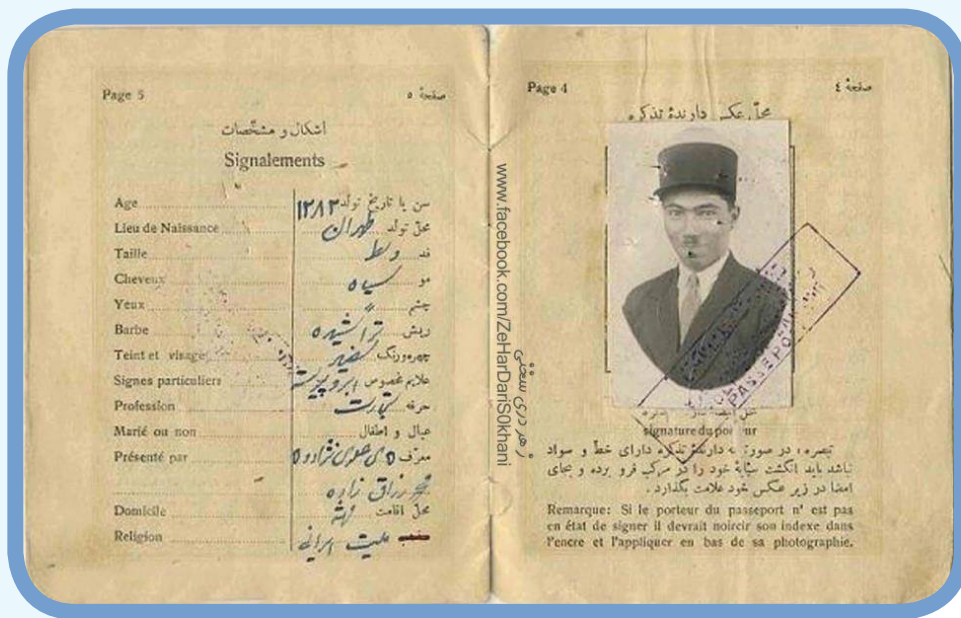 Page 5
صفحهٔ ۵
اشکال و مشخّصات
Signalements
Age
سن یا تاریخ تولد ۱۲۸۲
Lieu de Naissance
محلّ تولد طهران
Taille
قد وسط
Cheveux
مو سیاه
Yeux
چشم "
Barbe
ریش تراشیده
Teint et visage
چهره ورنگ
Signes particuliers
علایم مخصوص ابرو پیوسته
Profession
حرفه تجارت
Marié ou non
عیال و اطفال
Présenté par
معرّف
رزاق زاده
Domicile
محلّ اقامت
Religion
ملیت ایرانی
Page 4
صفحهٔ ٤
محلّ عکس دارندهٔ تذکره
PASSEPO
signature du por ur
تبصره: در صورت دارندهٔ تذکره دارای خطّ و سواد
نباشد باید انگشت سبّابهٔ خود را در مرکّب فرو برده و بجای
امضا در زیر عکس خود علامت بگذارد.
Remarque: Si le porteur du passeport n' est pas
en état de signer il devrait noircir son indexe dans
l'encre et l'appliquer en bas de sa photographie.
www.facebook.com/ZeHarDariS0khani
ز هر دری سخنی